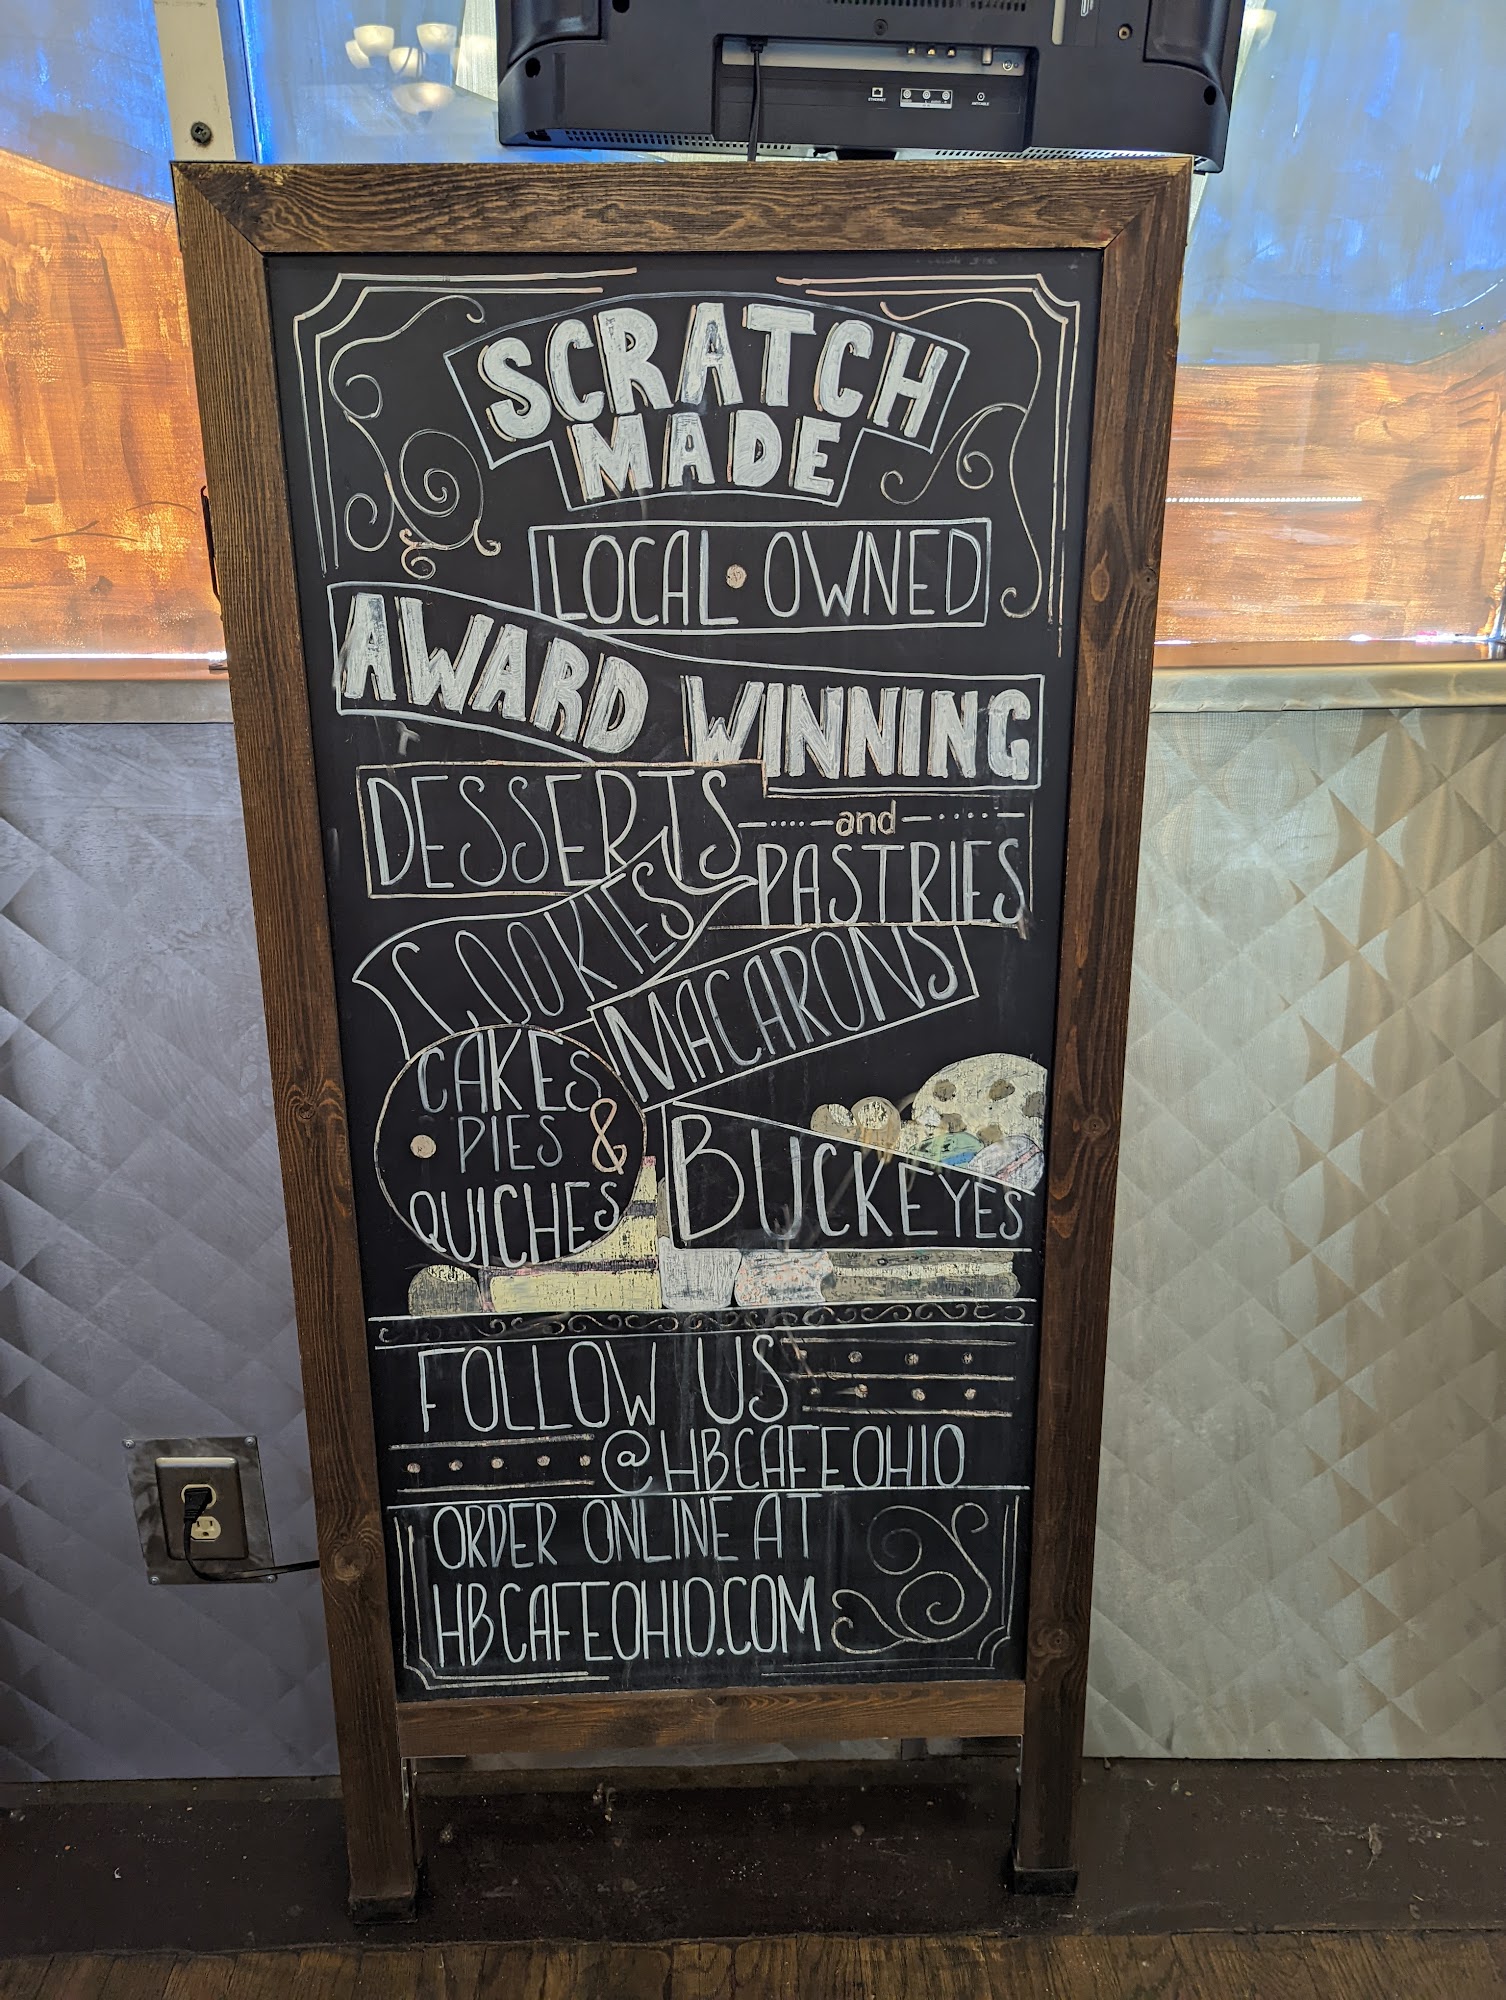 SCRATCH
MADE
LOCAL • OWNED
AWARD WINNING
DESSERTS
and
PASTRIES
COOKIES
MACARONS
CAKES
• PIES &
QUICHES
BUCKEYES
FOLLOW US
@HBCAFEOHIO
ORDER ONLINE AT
HBCAFEOHIO.COM
ETHERNET